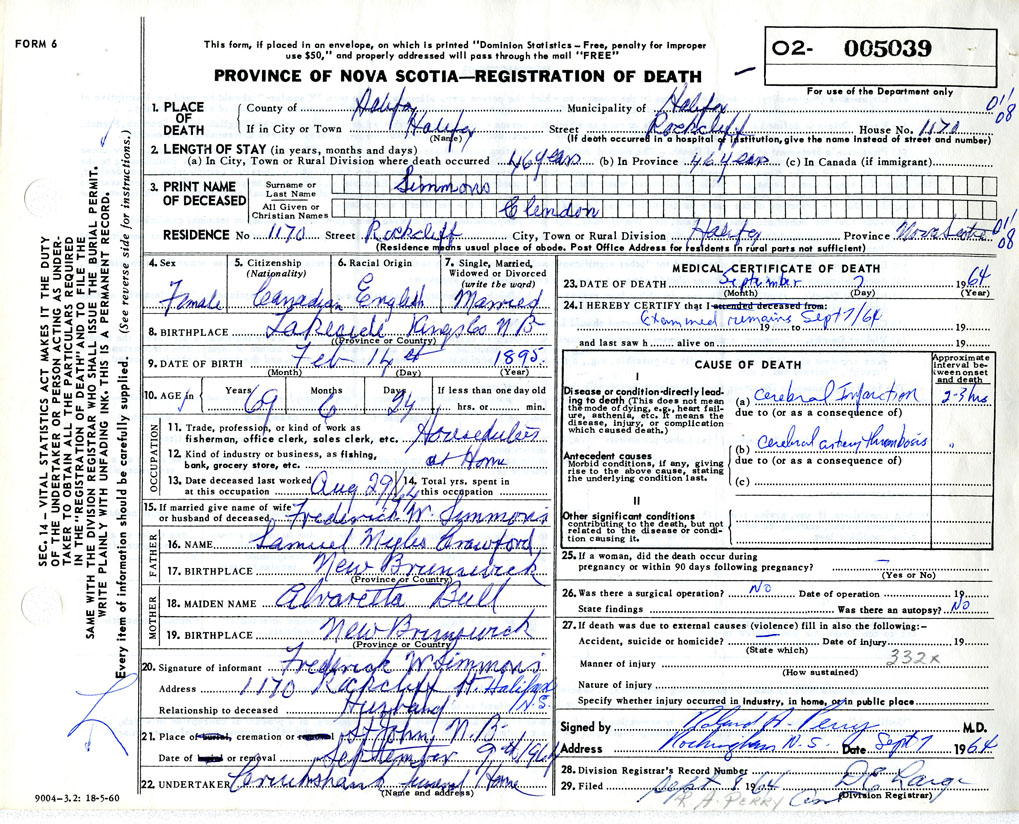 FORM 6
This form, if placed in an envelope, on which is printed "Dominion Statistics – Free, penalty for improper
use $50," and properly addressed will pass through the mail "FREE"
02- 005039
For use of the Department only
PROVINCE OF NOVA SCOTIA—REGISTRATION OF DEATH
011
08
1. PLACE OF DEATH
County of Halifax Municipality of Halifax
If in City or Town Halifax Street Rockcliff House No. 1170
(Name) (If death occurred in a hospital or institution, give the name instead of street and number)
2. LENGTH OF STAY (in years, months and days)
(a) In City, Town or Rural Division where death occurred 46 years (b) In Province 46 years (c) In Canada (if immigrant)
3. PRINT NAME OF DECEASED
Surname or Last Name Simmons
All Given or Christian Names Clendon
RESIDENCE No 1170 Street Rockcliff City, Town or Rural Division Halifax Province Nova Scotia
011
08
(Residence means usual place of abode. Post Office Address for residents in rural parts not sufficient)
4. Sex Female
5. Citizenship (Nationality) Canadian
6. Racial Origin English
7. Single, Married, Widowed or Divorced (write the word) Married
8. BIRTHPLACE Lakeside Kings Co N B
(Province or Country)
9. DATE OF BIRTH Feb 14 1895.
(Month) (Day) (Year)
10. AGE Years 69 Months 6 Days 24 If less than one day old
hrs. or min.
OCCUPATION
11. Trade, profession, or kind of work as
fisherman, office clerk, sales clerk, etc. Houseduties
12. Kind of industry or business, as fishing,
bank, grocery store, etc. at Home
13. Date deceased last worked at this occupation Aug 29
14. Total yrs. spent in this occupation
15. If married give name of wife
or husband of deceased Frederick W. Simmons
FATHER
16. NAME Samuel Myles Crawford
17. BIRTHPLACE New Brunswick
(Province or Country)
MOTHER
18. MAIDEN NAME Alvaretta Bull
19. BIRTHPLACE New Brunswick
(Province or Country)
20. Signature of informant Frederick W Simmons
Address 1170 Rockcliff St. Halifax N.S.
Relationship to deceased Husband
21. Place of burial, cremation or removal St John, N.B.
Date of burial or removal September 9 1964
22. UNDERTAKER Cruikshank Funeral Home
(Name and address)
9004-3.2: 18-5-60
MEDICAL CERTIFICATE OF DEATH
23. DATE OF DEATH September 7 1964
(Month) (Day) (Year)
24. I HEREBY CERTIFY that I attended deceased from:
Examined remains Sept 7/64
19 to 19
and last saw h alive on 19
CAUSE OF DEATH
Approximate interval between onset and death
I
Disease or condition directly leading to death (This does not mean the mode of dying, e.g., heart failure, asthenia, etc. It means the disease, injury, or complication which caused death.)
(a) Cerebral Infarction 2-3 hrs
due to (or as a consequence of)
Antecedent causes
Morbid conditions, if any, giving rise to the above cause, stating the underlying condition last.
(b) cerebral artery thrombosis "
due to (or as a consequence of)
(c)
II
Other significant conditions
contributing to the death, but not related to the disease or condition causing it.
25. If a woman, did the death occur during
pregnancy or within 90 days following pregnancy? —
(Yes or No)
26. Was there a surgical operation? No Date of operation 19
State findings Was there an autopsy? No
27. If death was due to external causes (violence) fill in also the following:–
Accident, suicide or homicide? — Date of injury 19
(State which)
332x
Manner of injury
(How sustained)
Nature of injury
Specify whether injury occurred in industry, in home, or in public place
Signed by Roland A. Perry M.D.
Address Rockingham N.S. Date Sept 7 1964
28. Division Registrar's Record Number
29. Filed Sept 8 1964 D E Large
(Division Registrar)
R. A. PERRY
SEC. 14 – VITAL STATISTICS ACT MAKES IT THE DUTY
OF THE UNDERTAKER OR PERSON ACTING AS UNDER-
TAKER TO OBTAIN ALL THE PARTICULARS REQUIRED
IN THE "REGISTRATION OF DEATH" AND TO FILE THE
SAME WITH THE DIVISION REGISTRAR WHO SHALL ISSUE THE BURIAL PERMIT.
WRITE PLAINLY WITH UNFADING INK. THIS IS A PERMANENT RECORD.
Every item of information should be carefully supplied. (See reverse side for instructions.)